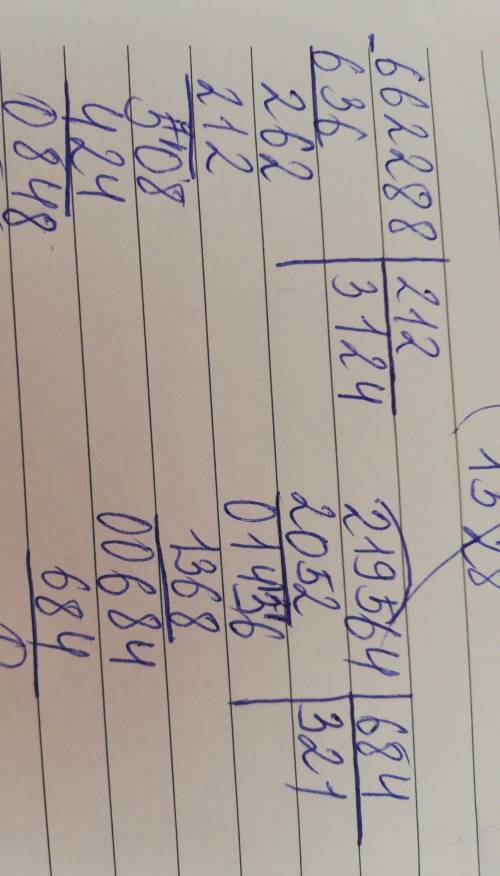 662288 212
636 3124
262
212
508
424
0848
219564 684
2052 321
1368
00684
684
0